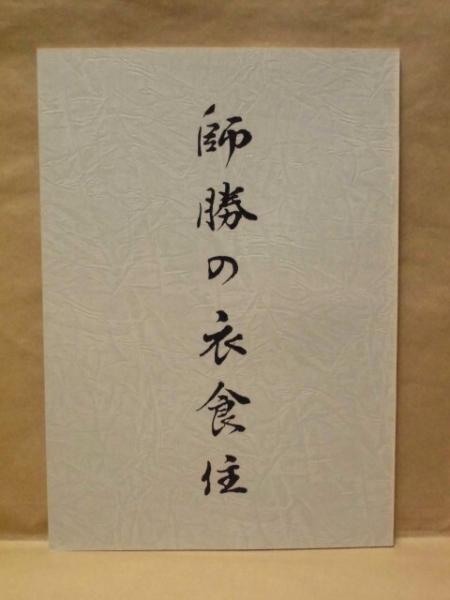 師勝の衣食住